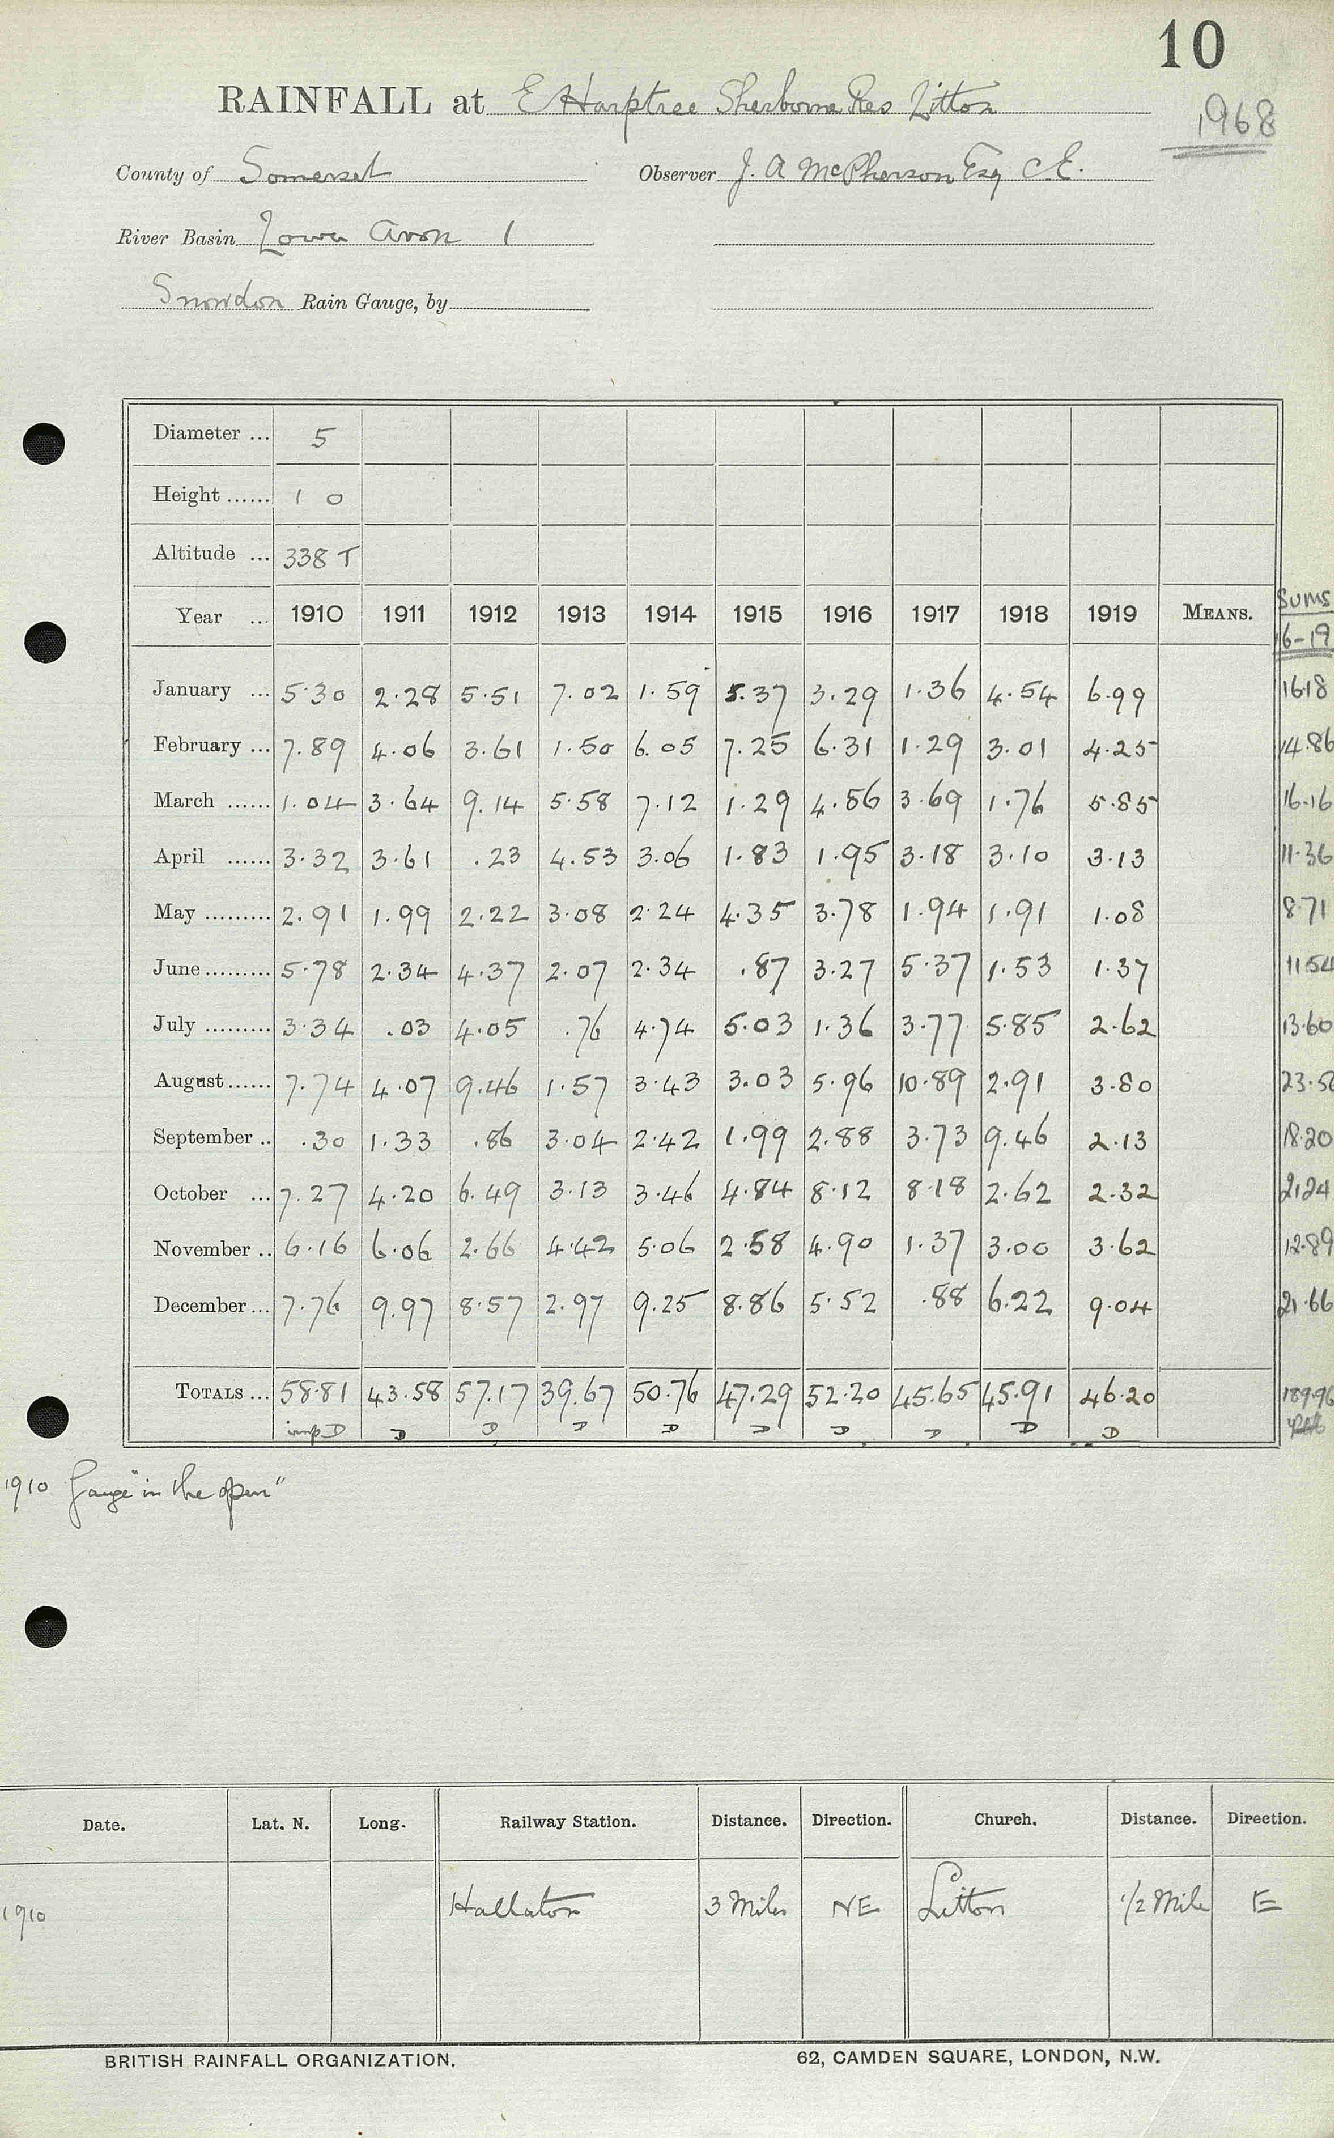 10
RAINFALL at E Harptree Sherborne Res Litton
1968
County of Somerset Observer J. A McPherson Esq C.E.
River Basin Lower Avon 1
Snowdon Rain Gauge, by
Diameter ... 5
Height ...... 1 0
Altitude ... 338 T
Sums
Year ... 1910 1911 1912 1913 1914 1915 1916 1917 1918 1919 MEANS. 16-19
January ... 5.30 2.28 5.51 7.02 1.59 5.37 3.29 1.36 4.54 6.99 16.18
February ... 7.89 4.06 3.61 1.50 6.05 7.25 6.31 1.29 3.01 4.25 14.86
March ...... 1.04 3.64 9.14 5.58 7.12 1.29 4.86 3.69 1.76 5.85 16.16
April ...... 3.32 3.61 .23 4.53 3.06 1.83 1.95 3.18 3.10 3.13 11.36
May ......... 2.91 1.99 2.22 3.08 2.24 4.35 3.78 1.94 1.91 1.08 8.71
June ......... 5.78 2.34 4.37 2.07 2.34 .87 3.27 5.37 1.53 1.37 11.54
July ......... 3.34 .03 4.05 .76 4.74 5.03 1.36 3.77 5.85 2.62 13.60
August ...... 7.74 4.07 9.46 1.57 3.43 3.03 5.96 10.89 2.91 3.80 23.56
September .. .30 1.33 .86 3.04 2.42 1.99 2.88 3.73 9.46 2.13 18.20
October ... 7.27 4.20 6.49 3.13 3.46 4.84 8.12 8.18 2.62 2.32 21.24
November .. 6.16 6.06 2.66 4.42 5.06 2.58 4.90 1.37 3.00 3.62 12.89
December ... 7.76 9.97 8.57 2.97 9.25 8.86 5.52 .88 6.22 9.04 21.66
TOTALS ... 58.81 43.58 57.17 39.67 50.76 47.29 52.20 45.65 45.91 46.20 189.96
imp D D D D D D D D D D
1910 Gauge "in the open"
Date. Lat. N. Long. Railway Station. Distance. Direction. Church. Distance. Direction.
1910 Hallaton 3 Miles NE Litton 1/2 Mile E
BRITISH RAINFALL ORGANIZATION. 62, CAMDEN SQUARE, LONDON, N.W.